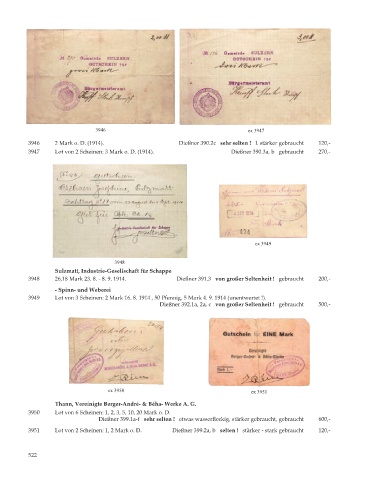 3,00 M
3,00 M
Gemeinde SULZERN
GUTSCHEIN für
Bürgermeisteramt
Gemeinde SULZERN
GUTSCHEIN für
Bürgermeisteramt
3946
ex 3947
3946 2 Mark o. D. (1914). Dießner 390.2c sehr selten ! l. stärker gebraucht 120,-
3947 Lot von 2 Scheinen: 3 Mark o. D. (1914). Dießner 390.3a, b gebraucht 270,-
Gutschein
3948
ex 3949
Sulzmatt, Industrie-Gesellschaft für Schappe
3948 26,18 Mark 23. 8. - 8. 9. 1914. Dießner 391.3 von großer Seltenheit ! gebraucht 200,-
- Spinn- und Weberei
3949 Lot von 3 Scheinen: 2 Mark 16. 8. 1914 , 50 Pfennig, 5 Mark 4. 9. 1914 (unentwertet !).
Dießner 392.1a, 2a, c von großer Seltenheit ! gebraucht 500,-
Gutschein für EINE Mark
Vereinigte
Berger-André- & Béha-Werke
ex 3950
ex 3951
Thann, Vereinigte Berger-André- & Béha- Werke A. G.
3950 Lot von 6 Scheinen: 1, 2, 3, 5, 10, 20 Mark o. D.
Dießner 399.1a-f sehr selten ! etwas wasserfleckig, stärker gebraucht, gebraucht 600,-
3951 Lot von 2 Scheinen: 1, 2 Mark o. D. Dießner 399.2a, b selten ! stärker - stark gebraucht 120,-
522